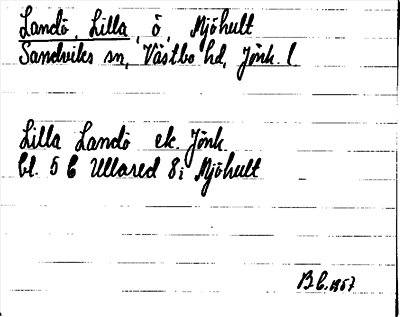 Landö, Lilla, ö, Mjöhult
Sandviks sn, Västbo hd, Jönk. l.
Lilla Landö ek. Jönk.
bl. 5 C Ullared 8i Mjöhult
B C. 1967